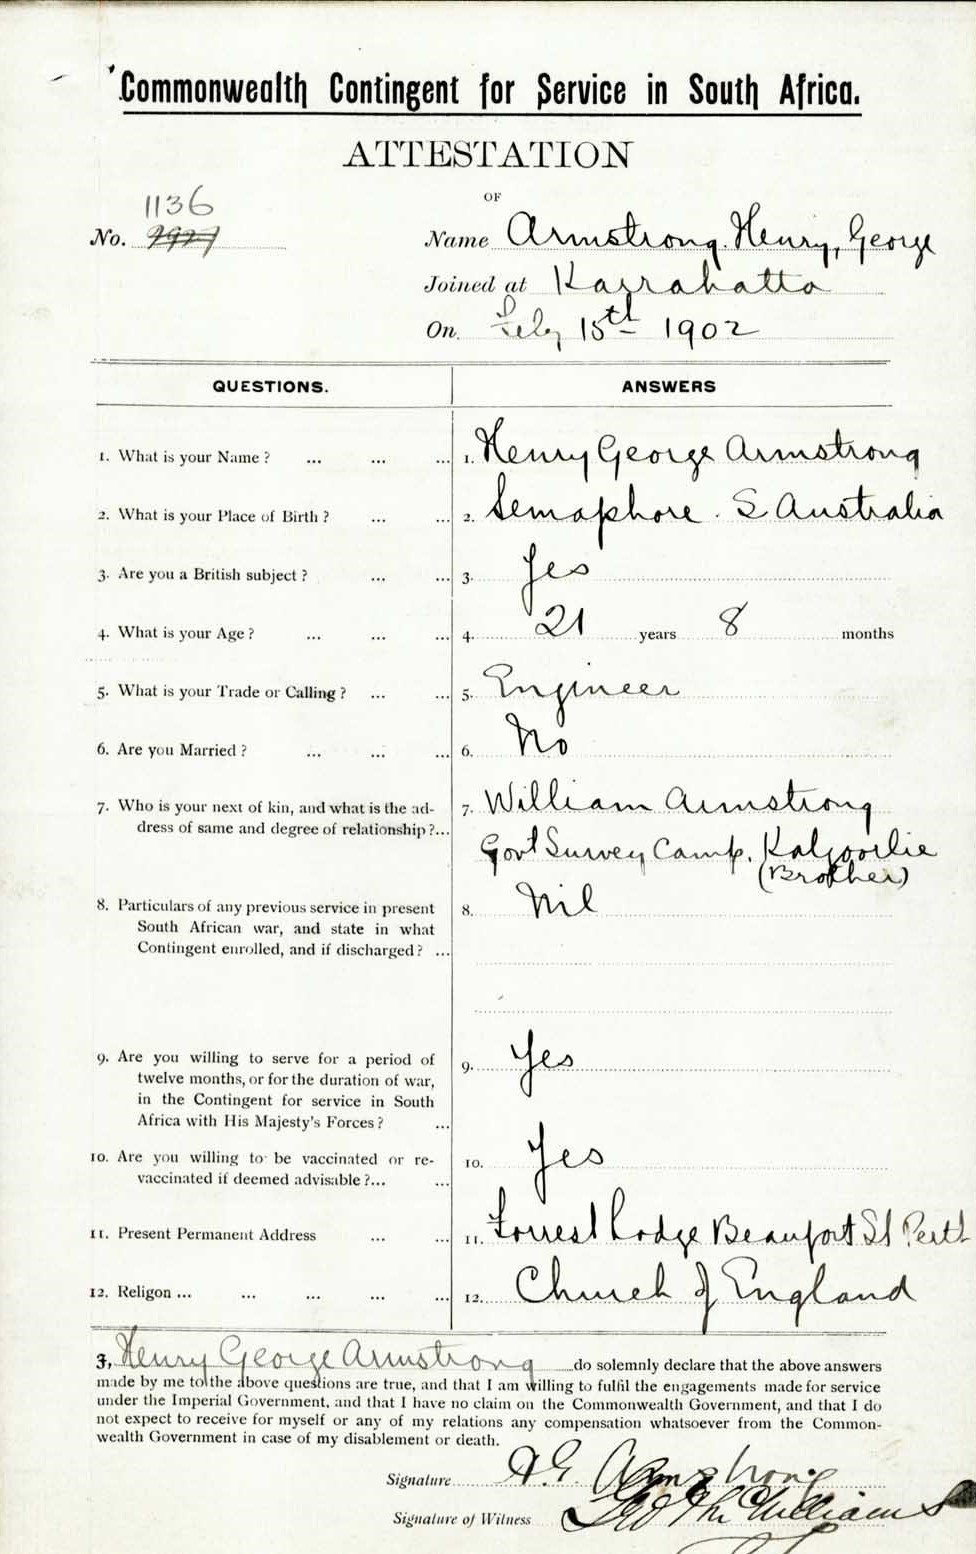 Commonwealth Contingent for Service in South Africa.
ATTESTATION
OF
1136
No.
Name Armstrong. Henry, George
Joined at Karrakatta
On. Feby 15th 1902
QUESTIONS. ANSWERS
1. What is your Name? ... ... ... 1. Henry George Armstrong
2. What is your Place of Birth? ... ... 2. Semaphore. S Australia
3. Are you a British subject? ... ... 3. Yes
4. What is your Age? ... ... ... 4. 21 years 8 months
5. What is your Trade or Calling? ... ... 5. Engineer
6. Are you Married? ... ... ... 6. No
7. Who is your next of kin, and what is the ad- 7. William Armstrong
dress of same and degree of relationship?... Govt Survey Camp. Kalgoorlie
(Brother)
8. Particulars of any previous service in present 8. Nil
South African war, and state in what
Contingent enrolled, and if discharged? ...
9. Are you willing to serve for a period of 9. Yes
twelve months, or for the duration of war,
in the Contingent for service in South
Africa with His Majesty's Forces? ...
10. Are you willing to be vaccinated or re- 10. Yes
vaccinated if deemed advisable?... ...
11. Present Permanent Address ... ... 11. Forrest Lodge Beaufort St Perth
12. Religon ... ... ... ... ... 12. Church of England
I, Henry George Armstrong do solemnly declare that the above answers
made by me to the above questions are true, and that I am willing to fulfil the engagements made for service
under the Imperial Government, and that I have no claim on the Commonwealth Government, and that I do
not expect to receive for myself or any of my relations any compensation whatsoever from the Common-
wealth Government in case of my disablement or death.
Signature H G Armstrong
Signature of Witness Williams